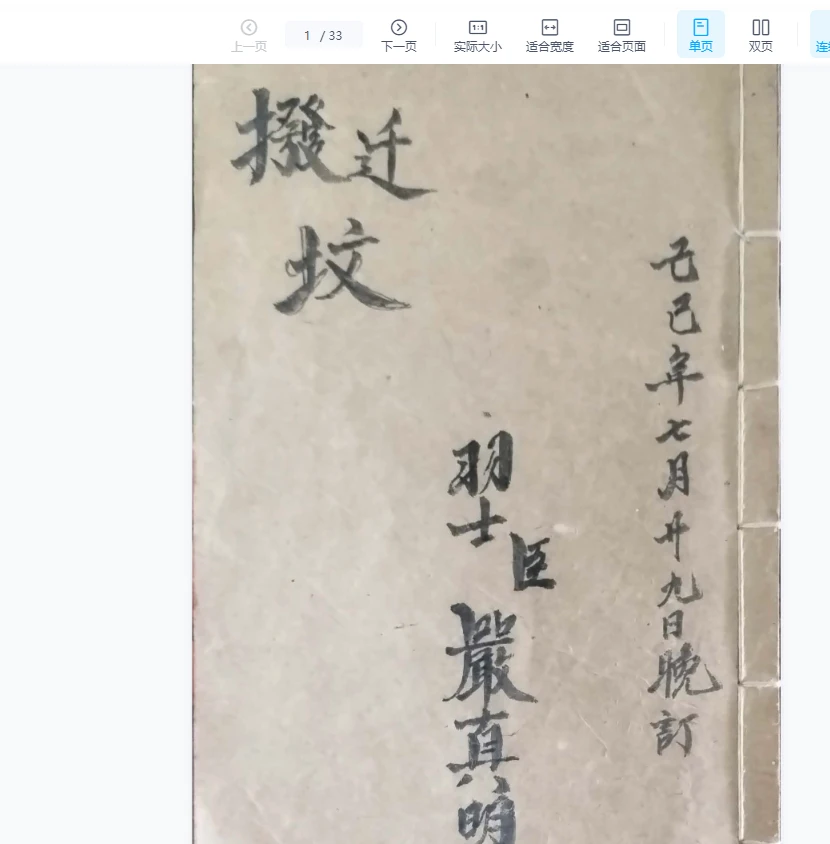 上一页
1 / 33
下一页
实际大小
适合宽度
适合页面
单页
双页
连
己巳年七月廿九日晚訂
撥迁
坟
羽士臣嚴真明